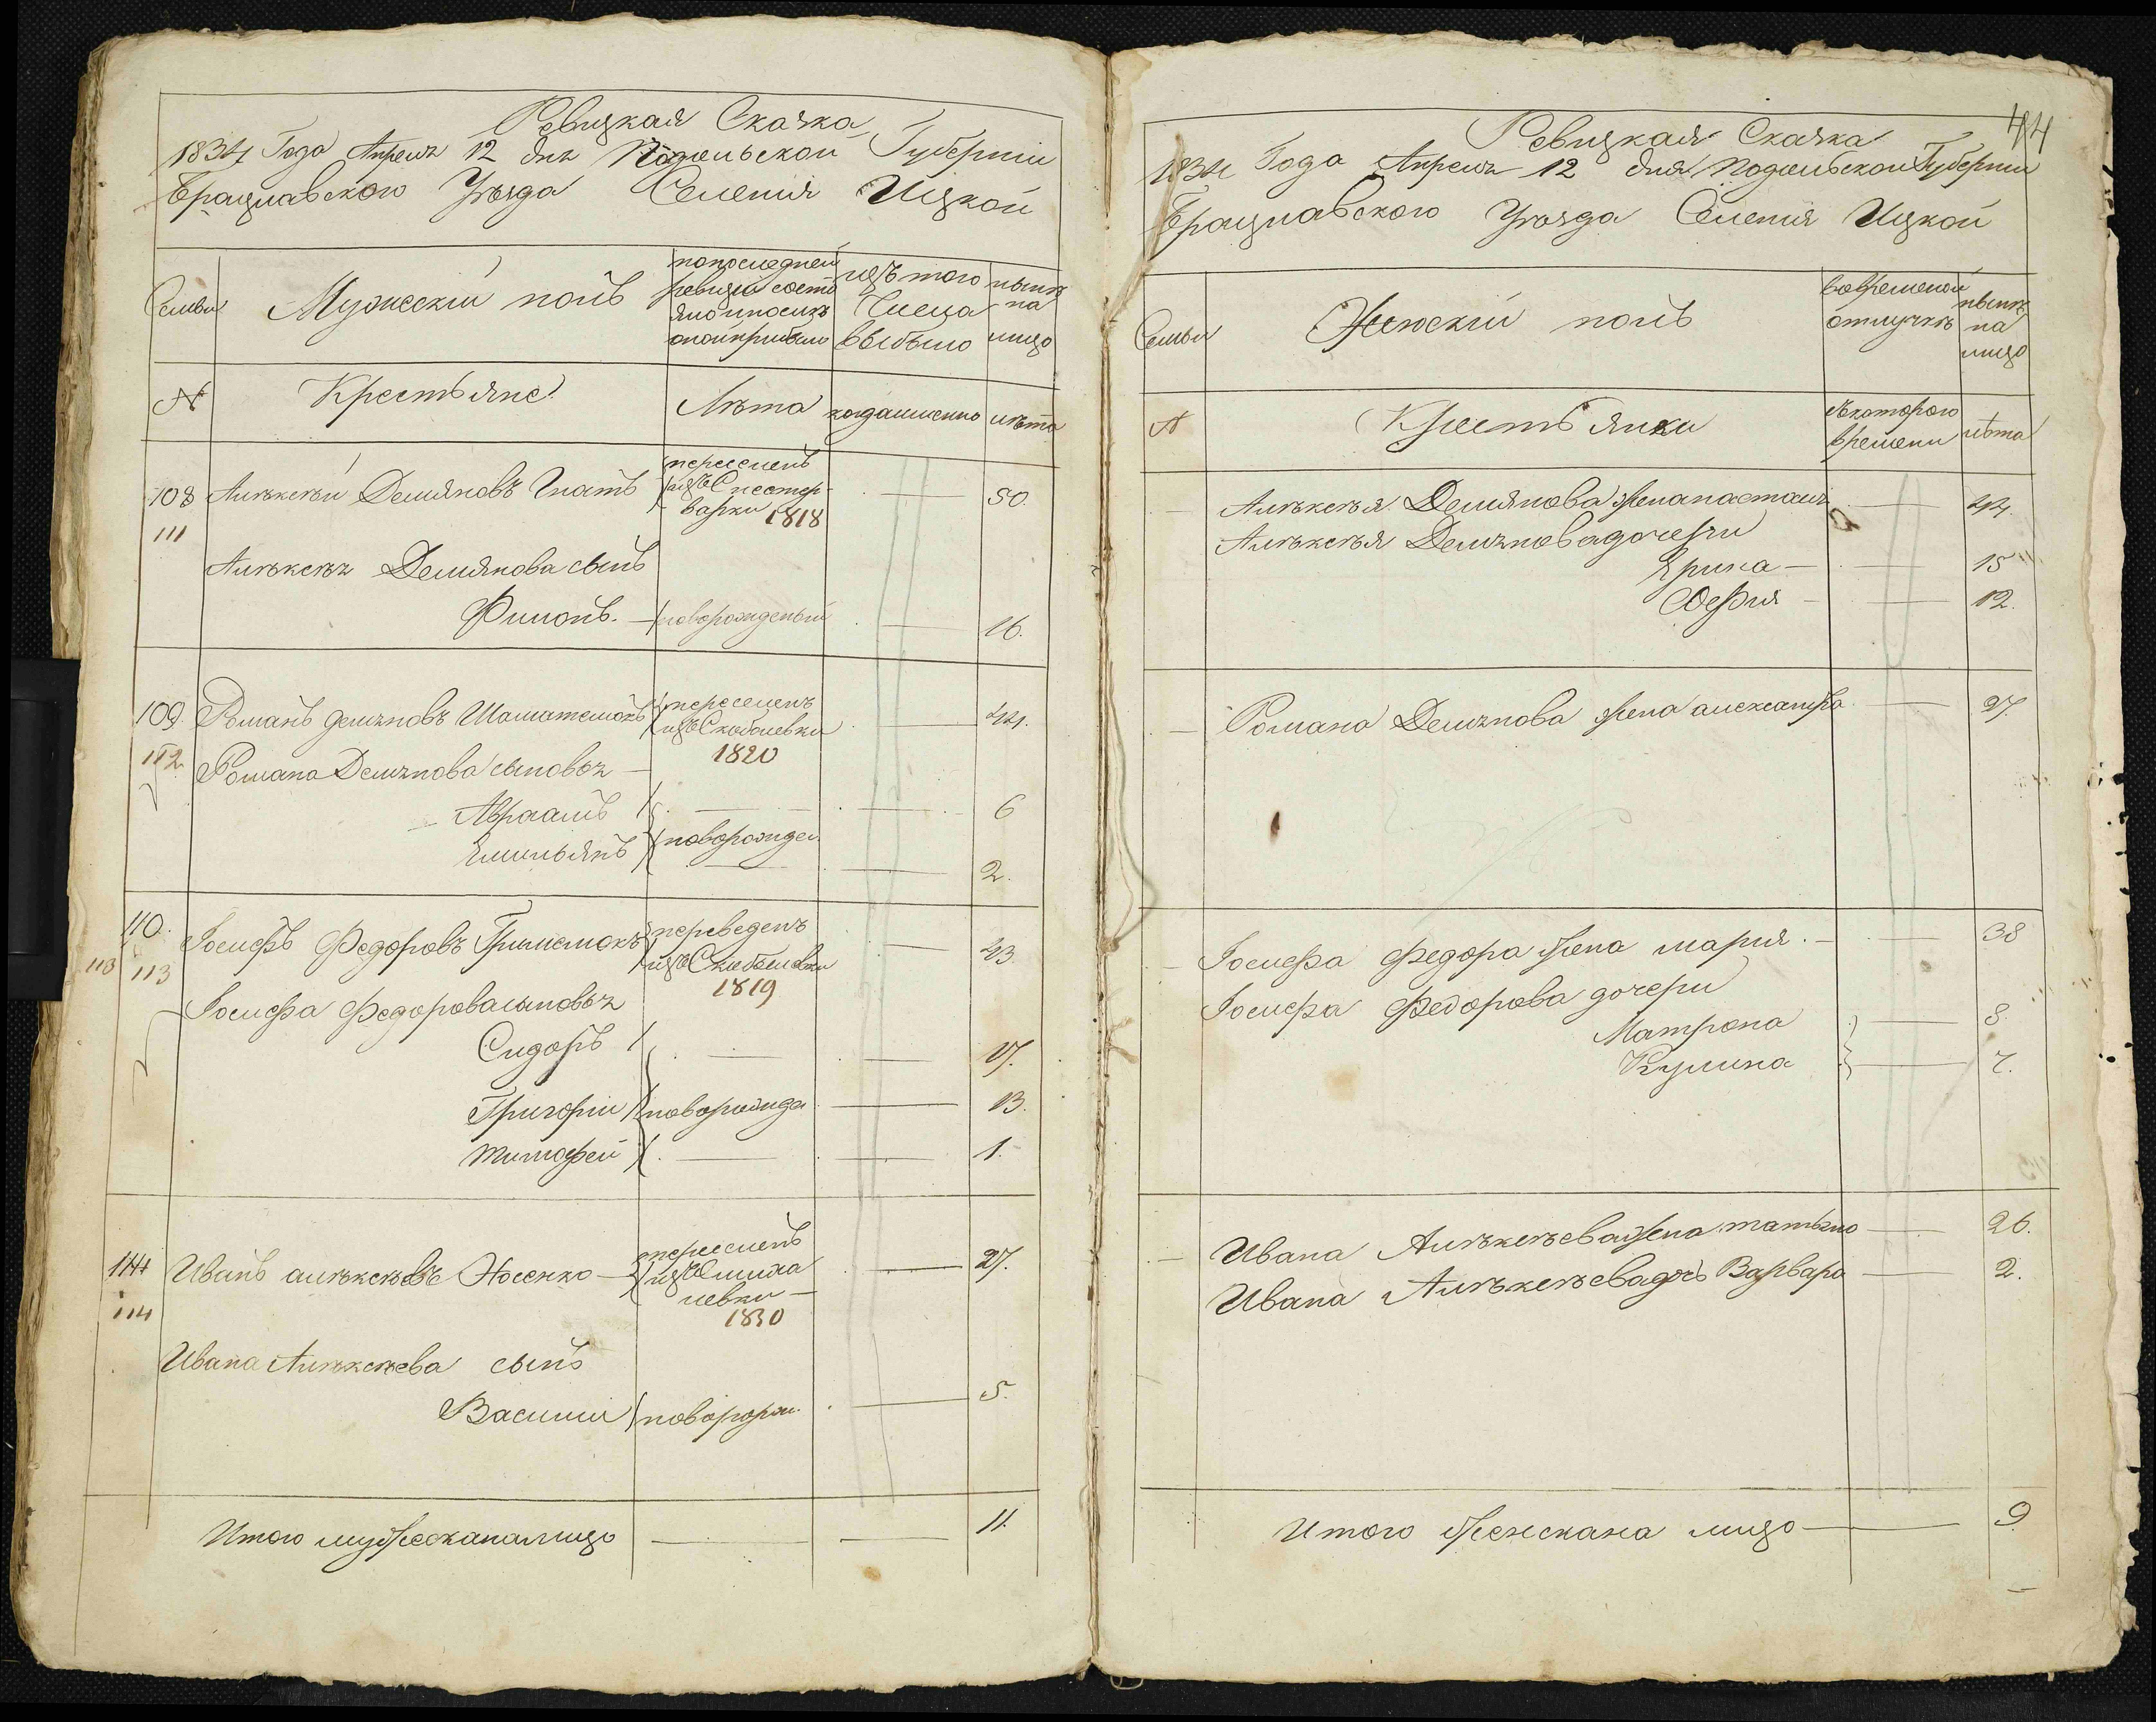 Ревизкая Сказка
1834 Года Апреля 12 дня Подольской Губернии
Брацлавского Уезда Селения Ицкой
Семьи
Мужеский полъ
попоследней
ревизии состо
яло ипослѣ
оной прибыло
изъ того
Числа
выбыло
нынѣ
на
лицо
№
Крестьяне
Лѣта
когдаименно
лѣта
108
111
Алѣксѣй Демяновъ Гнатъ
переселенъ
изъ
варки 1818
50.
Алѣксѣя Демянова сынъ
Филонъ
новорожденый
16.
109.
112
Романъ Демяновъ
переселенъ
изъ Скибелевки
1820
44.
Романа Демянова сыновья
Авраамъ
6
Емильянъ
новорожде.
2.
110.
113 113
Іосифъ Федоровъ
переведенъ
изъ Скибелевки
1819
43.
Іосифа Федорова сыновья
Сидоръ
17.
Григорій
новорожде
13.
Тимофей
1.
111
114
Иванъ Алѣксѣевъ Носенко
переселенъ
левки
1830
27.
Ивана Алѣксѣева сынъ
Василий
новорож.
5.
Итого мужеска на лицо
11.
44
Ревизкая Сказка
1834 Года Апреля 12 дня Подольской Губернии
Брацлавского Уезда Селения Ицкой
Семьи
Женский полъ
вовременой
отлучкѣ
нынѣ
на
лицо
№
Крестьянки
съкоторого
времени
лѣта
Алѣксѣя Демянова жена настася
44.
Алѣксѣя Демянова дочери
Ярина
15
София
12.
Романа Демянова жена александра
27.
Іосифа Федора жена мария
38
Іосифа Федорова дочери
Матрона
8.
Кулина
4.
Ивана Алѣксѣева жена татьяна
26.
Ивана Алѣксѣева дочь Варвара
2.
Итого женска на лицо
9